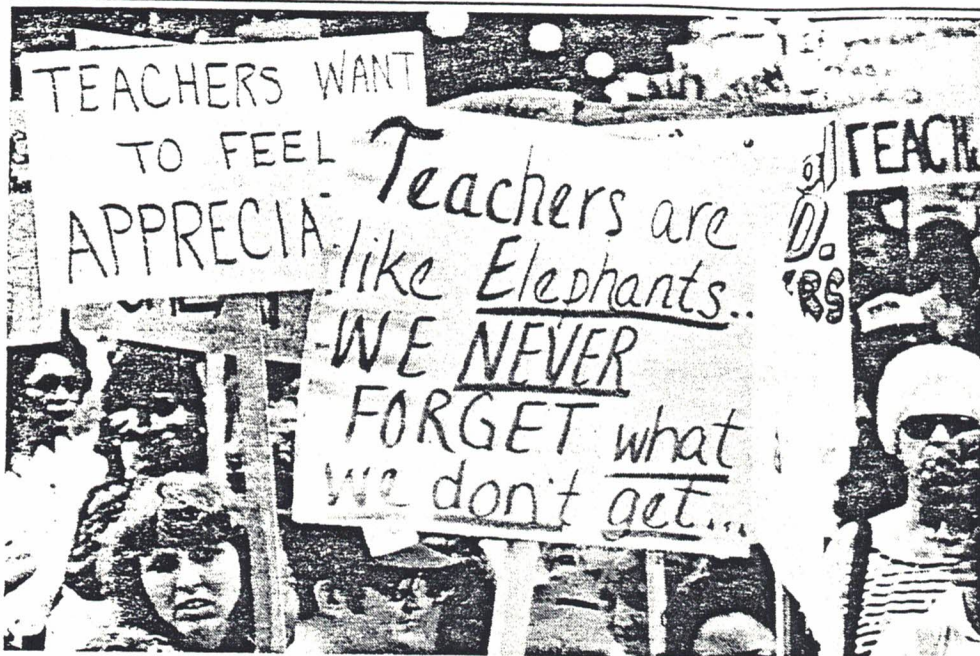 TEACHERS WANT
TO FEEL
APPRECIA
Teachers are
like Elephants..
WE NEVER
FORGET what
we don't get...
D.
ERS
TEACH